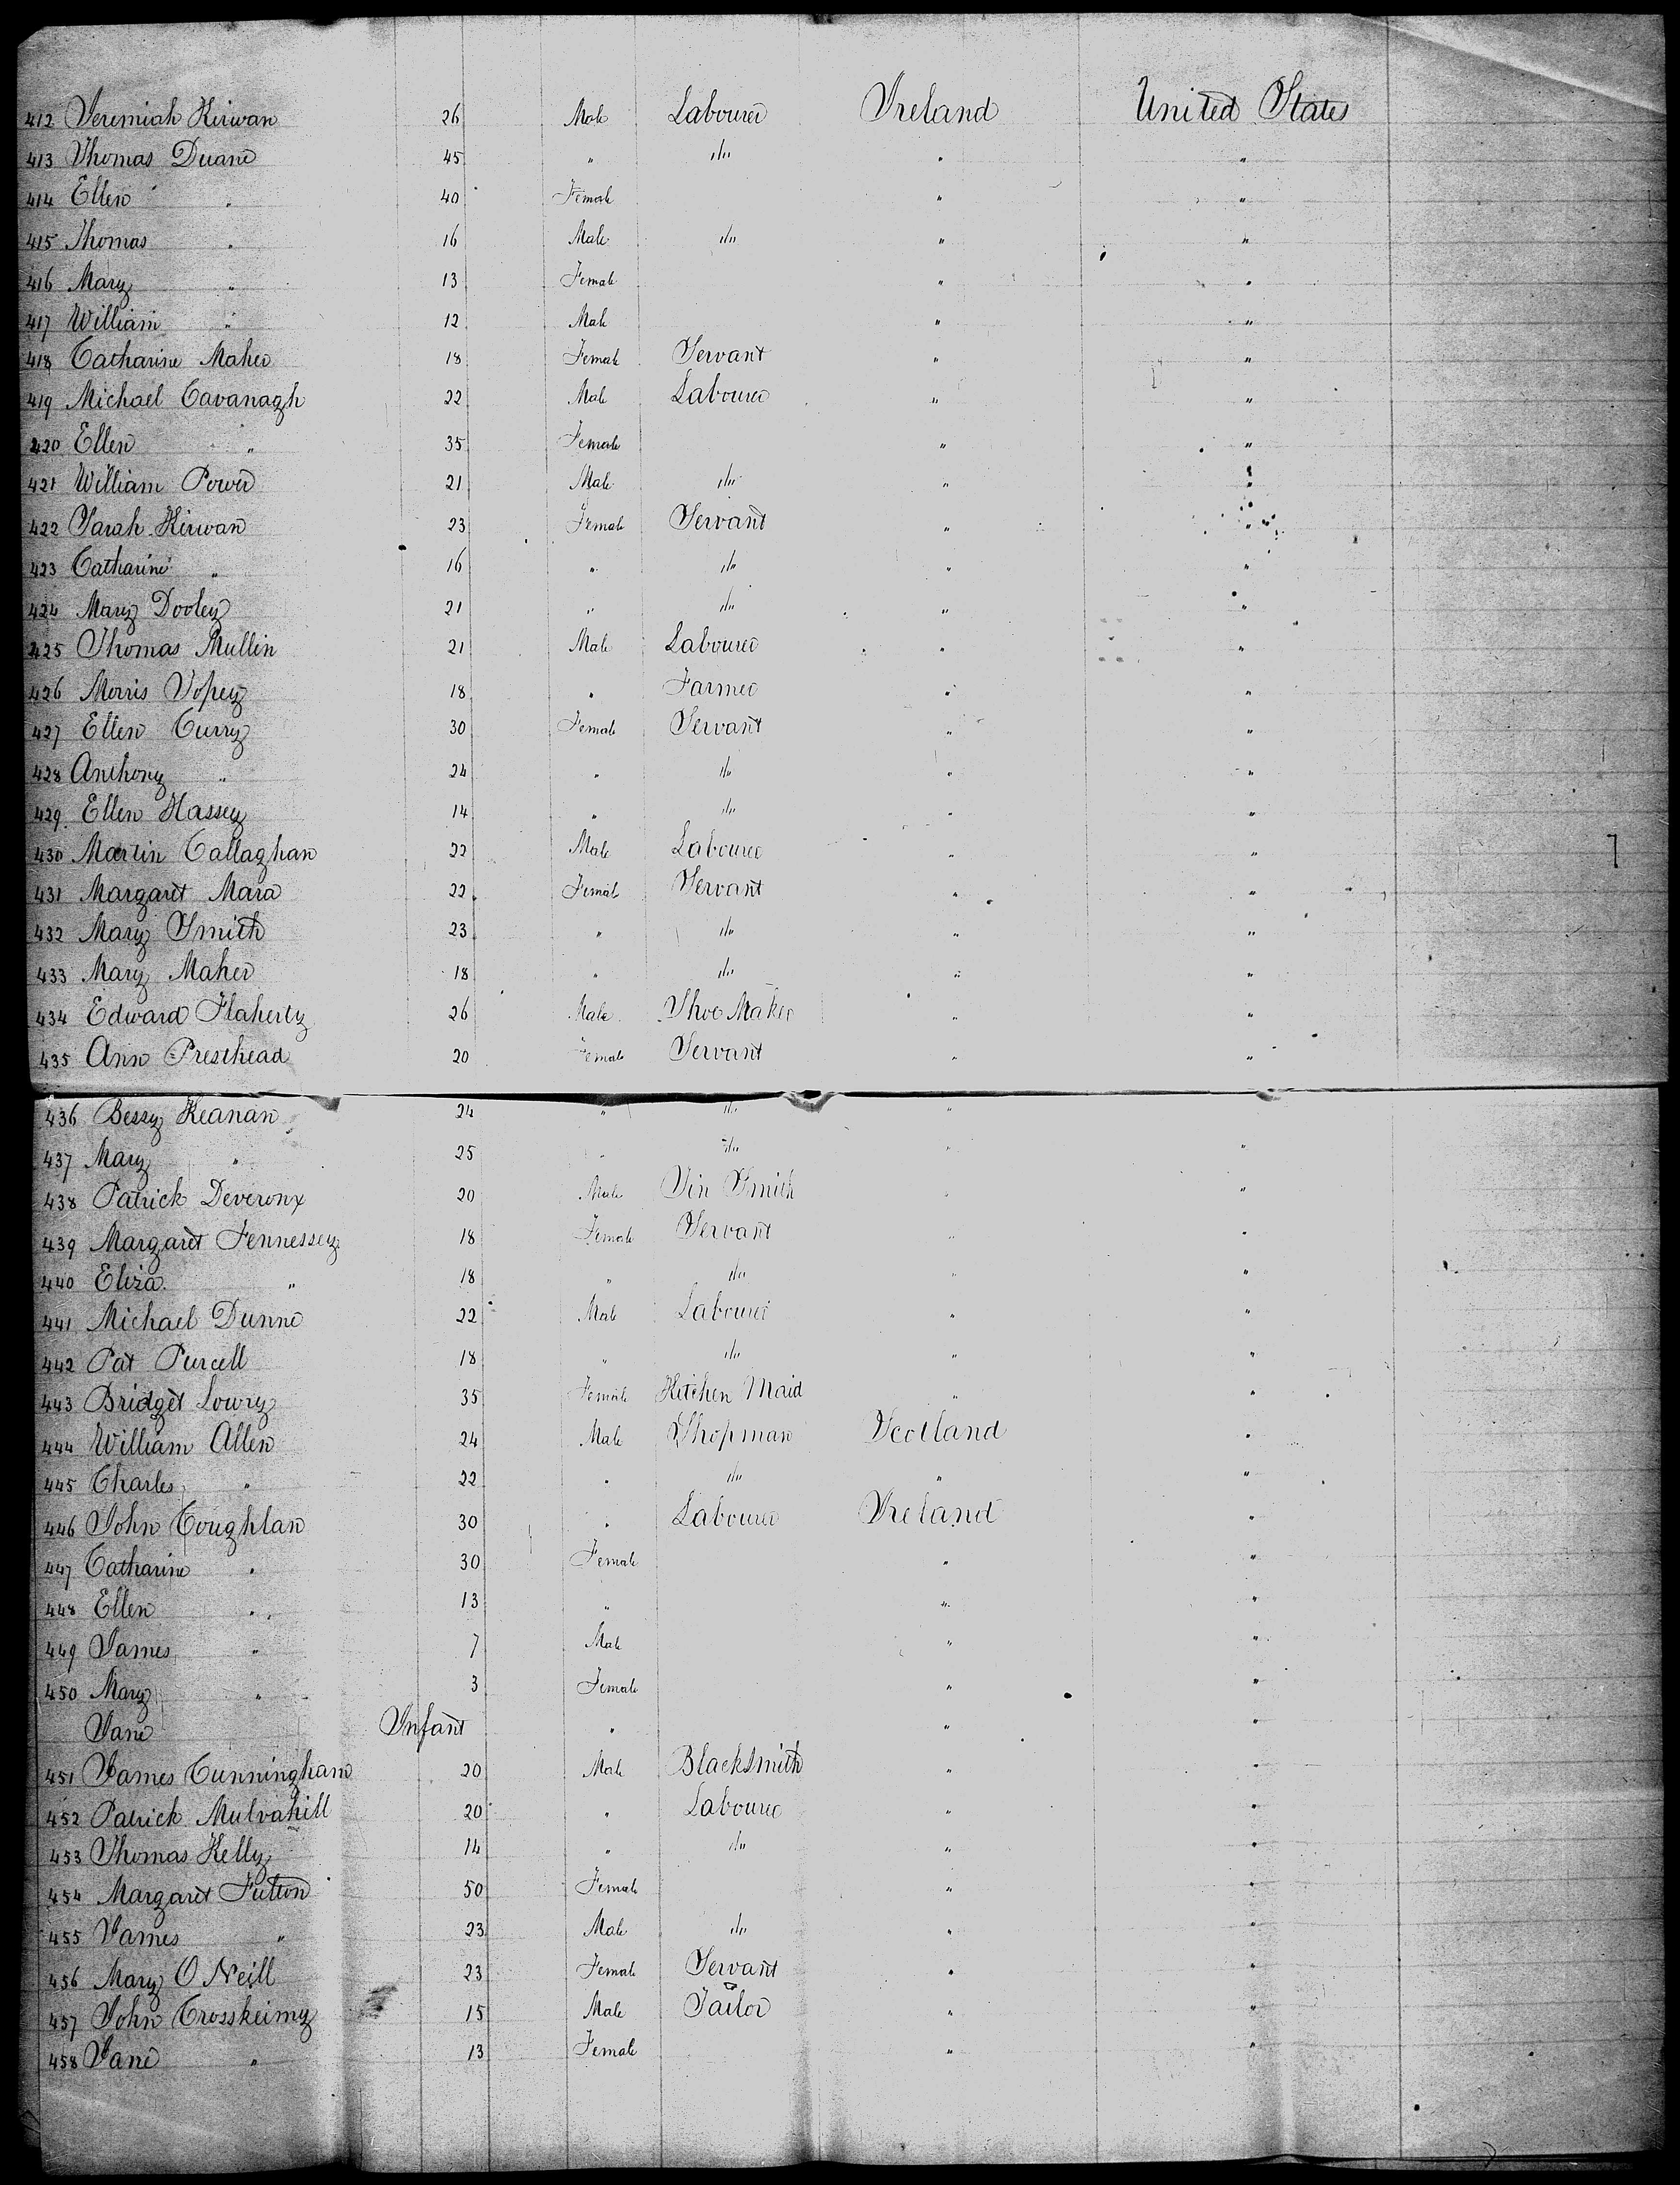 412 Jeremiah Kirwan 26 Male Labourer Ireland United States
413 Thomas Duane 45 " do " "
414 Ellen " 40 Female " "
415 Thomas " 16 Male do " "
416 Mary " 13 Female " "
417 William " 12 Male " "
418 Catharine Maher 18 Female Servant " "
419 Michael Cavanagh 22 Male Labourer " "
420 Ellen " 35 Female " "
421 William Power 21 Male do " "
422 Sarah Kirwan 23 Female Servant " "
423 Catharine " 16 " do " "
424 Mary Dooley 21 " do " "
425 Thomas Mullin 21 Male Labourer " "
426 Morris 18 " Farmer " "
427 Ellen Curry 30 Female Servant " "
428 Anthony " 24 " do " "
429 Ellen Hassey 14 " do " "
430 Martin Callaghan 22 Male Labourer " "
431 Margaret Mara 22 Female Servant " "
432 Mary Smith 23 " do " "
433 Mary Maher 18 " do " "
434 Edward Flaherty 26 Male Shoe Maker " "
435 Ann Presthead 20 Female Servant " "
436 Bessy Keanan 24 " do "
437 Mary " 25 " do " "
438 Patrick Deveronx 20 Male Tin Smith " "
439 Margaret Fennessey 18 Female Servant " "
440 Eliza " 18 " do " "
441 Michael Dunne 22 Male Labourer " "
442 Pat Purcell 18 " do " "
443 Bridget Lowry 35 Female Kitchen Maid " "
444 William Allen 24 Male Shopman Scotland "
445 Charles " 22 " do " "
446 John Coughlan 30 " Labourer Ireland "
447 Catharine " 30 Female " "
448 Ellen " 13 " " "
449 James " 7 Male " "
450 Mary " 3 Female " "
Jane Infant " " "
451 James Cunningham 20 Male Blacksmith " "
452 Patrick Mulvahill 20 " Labourer " "
453 Thomas Kelly 14 " do " "
454 Margaret Fulton 50 Female " "
455 James " 23 Male do " "
456 Mary O Neill 23 Female Servant " "
457 John Crosskeimy 15 Male Tailor " "
458 Jane " 13 Female " "